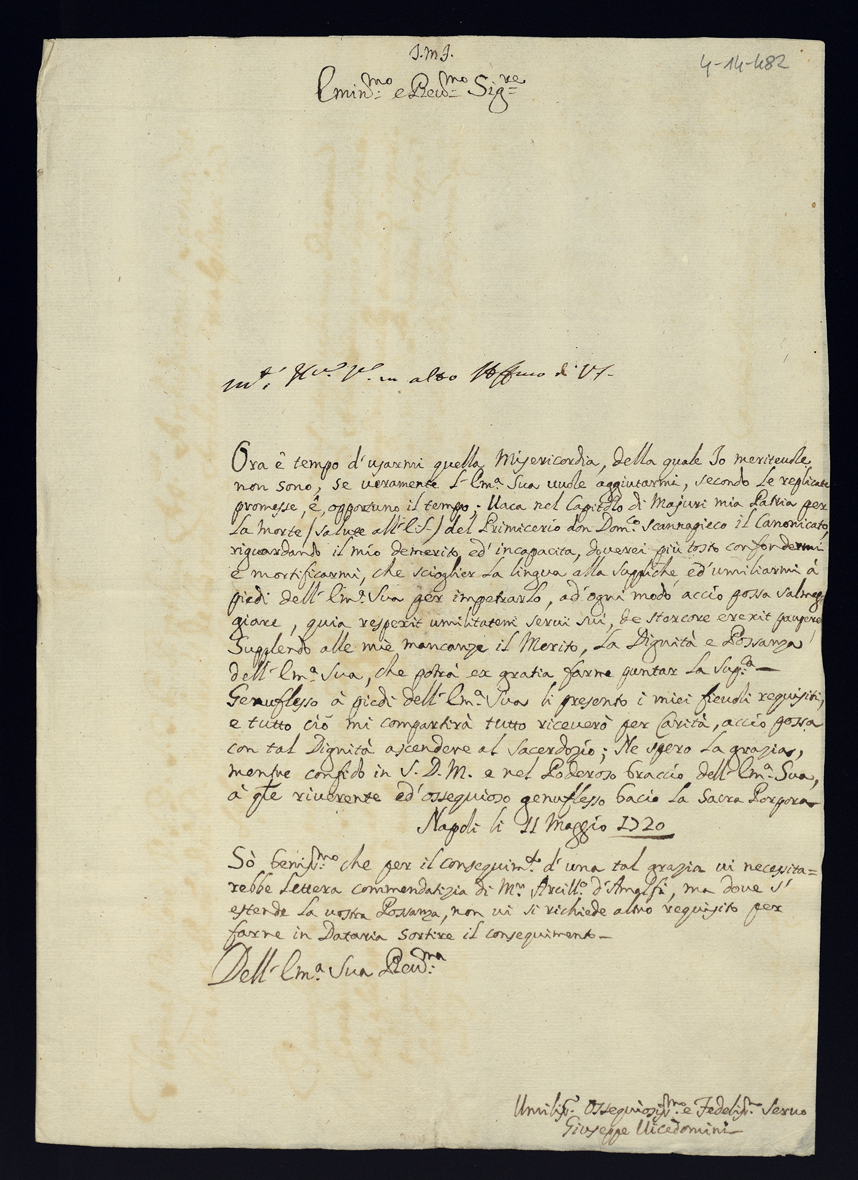 J.M.J.
4-14-482
Emin.mo e Reu.mo Sig.re
in altro
Ora è tempo d'usarmi quella Misericordia, della quale Io meriteuole
non sono, se ueramente l'Em.a Sua uuole aggiutarmi, secondo le replicate
promesse, è opportuno il tempo; Uaca nel Capitolo di Majuri mia Patria per
la morte (salute all'E.S.) del Primicerio don Dom.co Scannagieco il Canonicato,
riguardando il mio demerito, ed'incapacita, douerei più tosto confondermi
e mortificarmi, che scioglier la lingua alla suppliche ed'umiliarmi à
piedi dell'Em.a Sua per impetrarlo, ad'ogni modo acciò possa salmeg
giare, quia respexit umilitatem serui sui, de stercore erexit pauperē,
Supplendo alle mie mancanze il Merito, la Dignità e Possanza
dell'Em.a Sua, che potrà ex gratia farne
Genuflesso à piedi dell'Em.a Sua li presento i miei fieuoli requisiti,
e tutto ciò mi compartirà tutto riceuerò per Carità, acciò possa
con tal Dignità ascendere al Sacerdozio; Ne spero la grazia,
mentre confido in S.D.M. e nel Poderoso braccio dell'Em.a Sua,
à q̄le riuerente ed'ossequioso genuflesso bacio la Sacra Porpora
Napoli li 11 Maggio 1720
Sò beniss.mo che per il conseguim.to d'una tal grazia ui necessita=
rebbe Lettera commendatizia di M.r Arciu.o d'Amalfi, ma doue s'
estende la uostra Possanza, non ui si richiede altro requisito per
farne in Dataria sortire il conseguimento
Dell'Em.a Sua Reu.ma
Umiliss.o Ossequiosiss.mo e Fedeliss.mo Seruo
Giuseppe Uicedomini